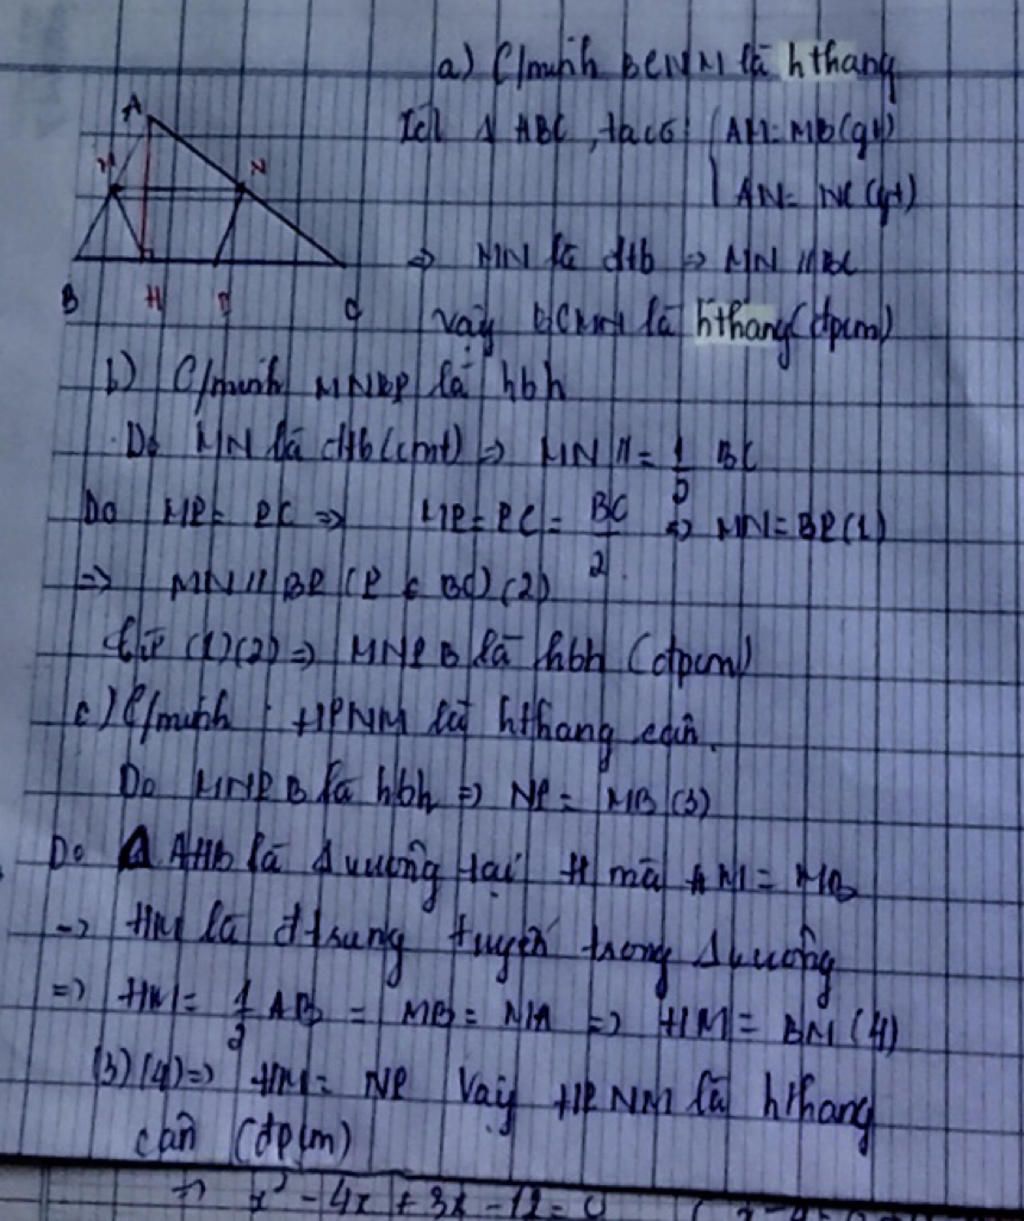 a) C/minh BCNM là hthang
A
Xét Δ ABC, ta có: AM = MB (gt)
M N
AN = NC (gt)
⇒ MN là đtb ⇒ MN // BC
B H P C
Vậy BCNM là hthang (đpcm)
b) C/minh MNBP là hbh
Do MN là đtb (cmt) ⇒ MN // = 1/2 BC
Do MP = PC ⇒ MP = PC = BC/2 ⇒ MN = BP (1)
⇒ MN // BP (P ∈ BC) (2)
Từ (1) (2) ⇒ MNPB là hbh (đpcm)
c) C/minh: HPNM là hthang cân.
Do MNPB là hbh ⇒ NP = MB (3)
Do Δ AHB là Δ vuông tại H mà AM = MB
⇒ HM là đtrung tuyến trong Δ vuông
⇒ HM = 1/2 AB = MB = MA ⇒ HM = BM (4)
(3) (4) ⇒ HM = NP Vậy HPNM là hthang
cân (đpcm)
⇒ x² - 4x + 3x - 12 = 0